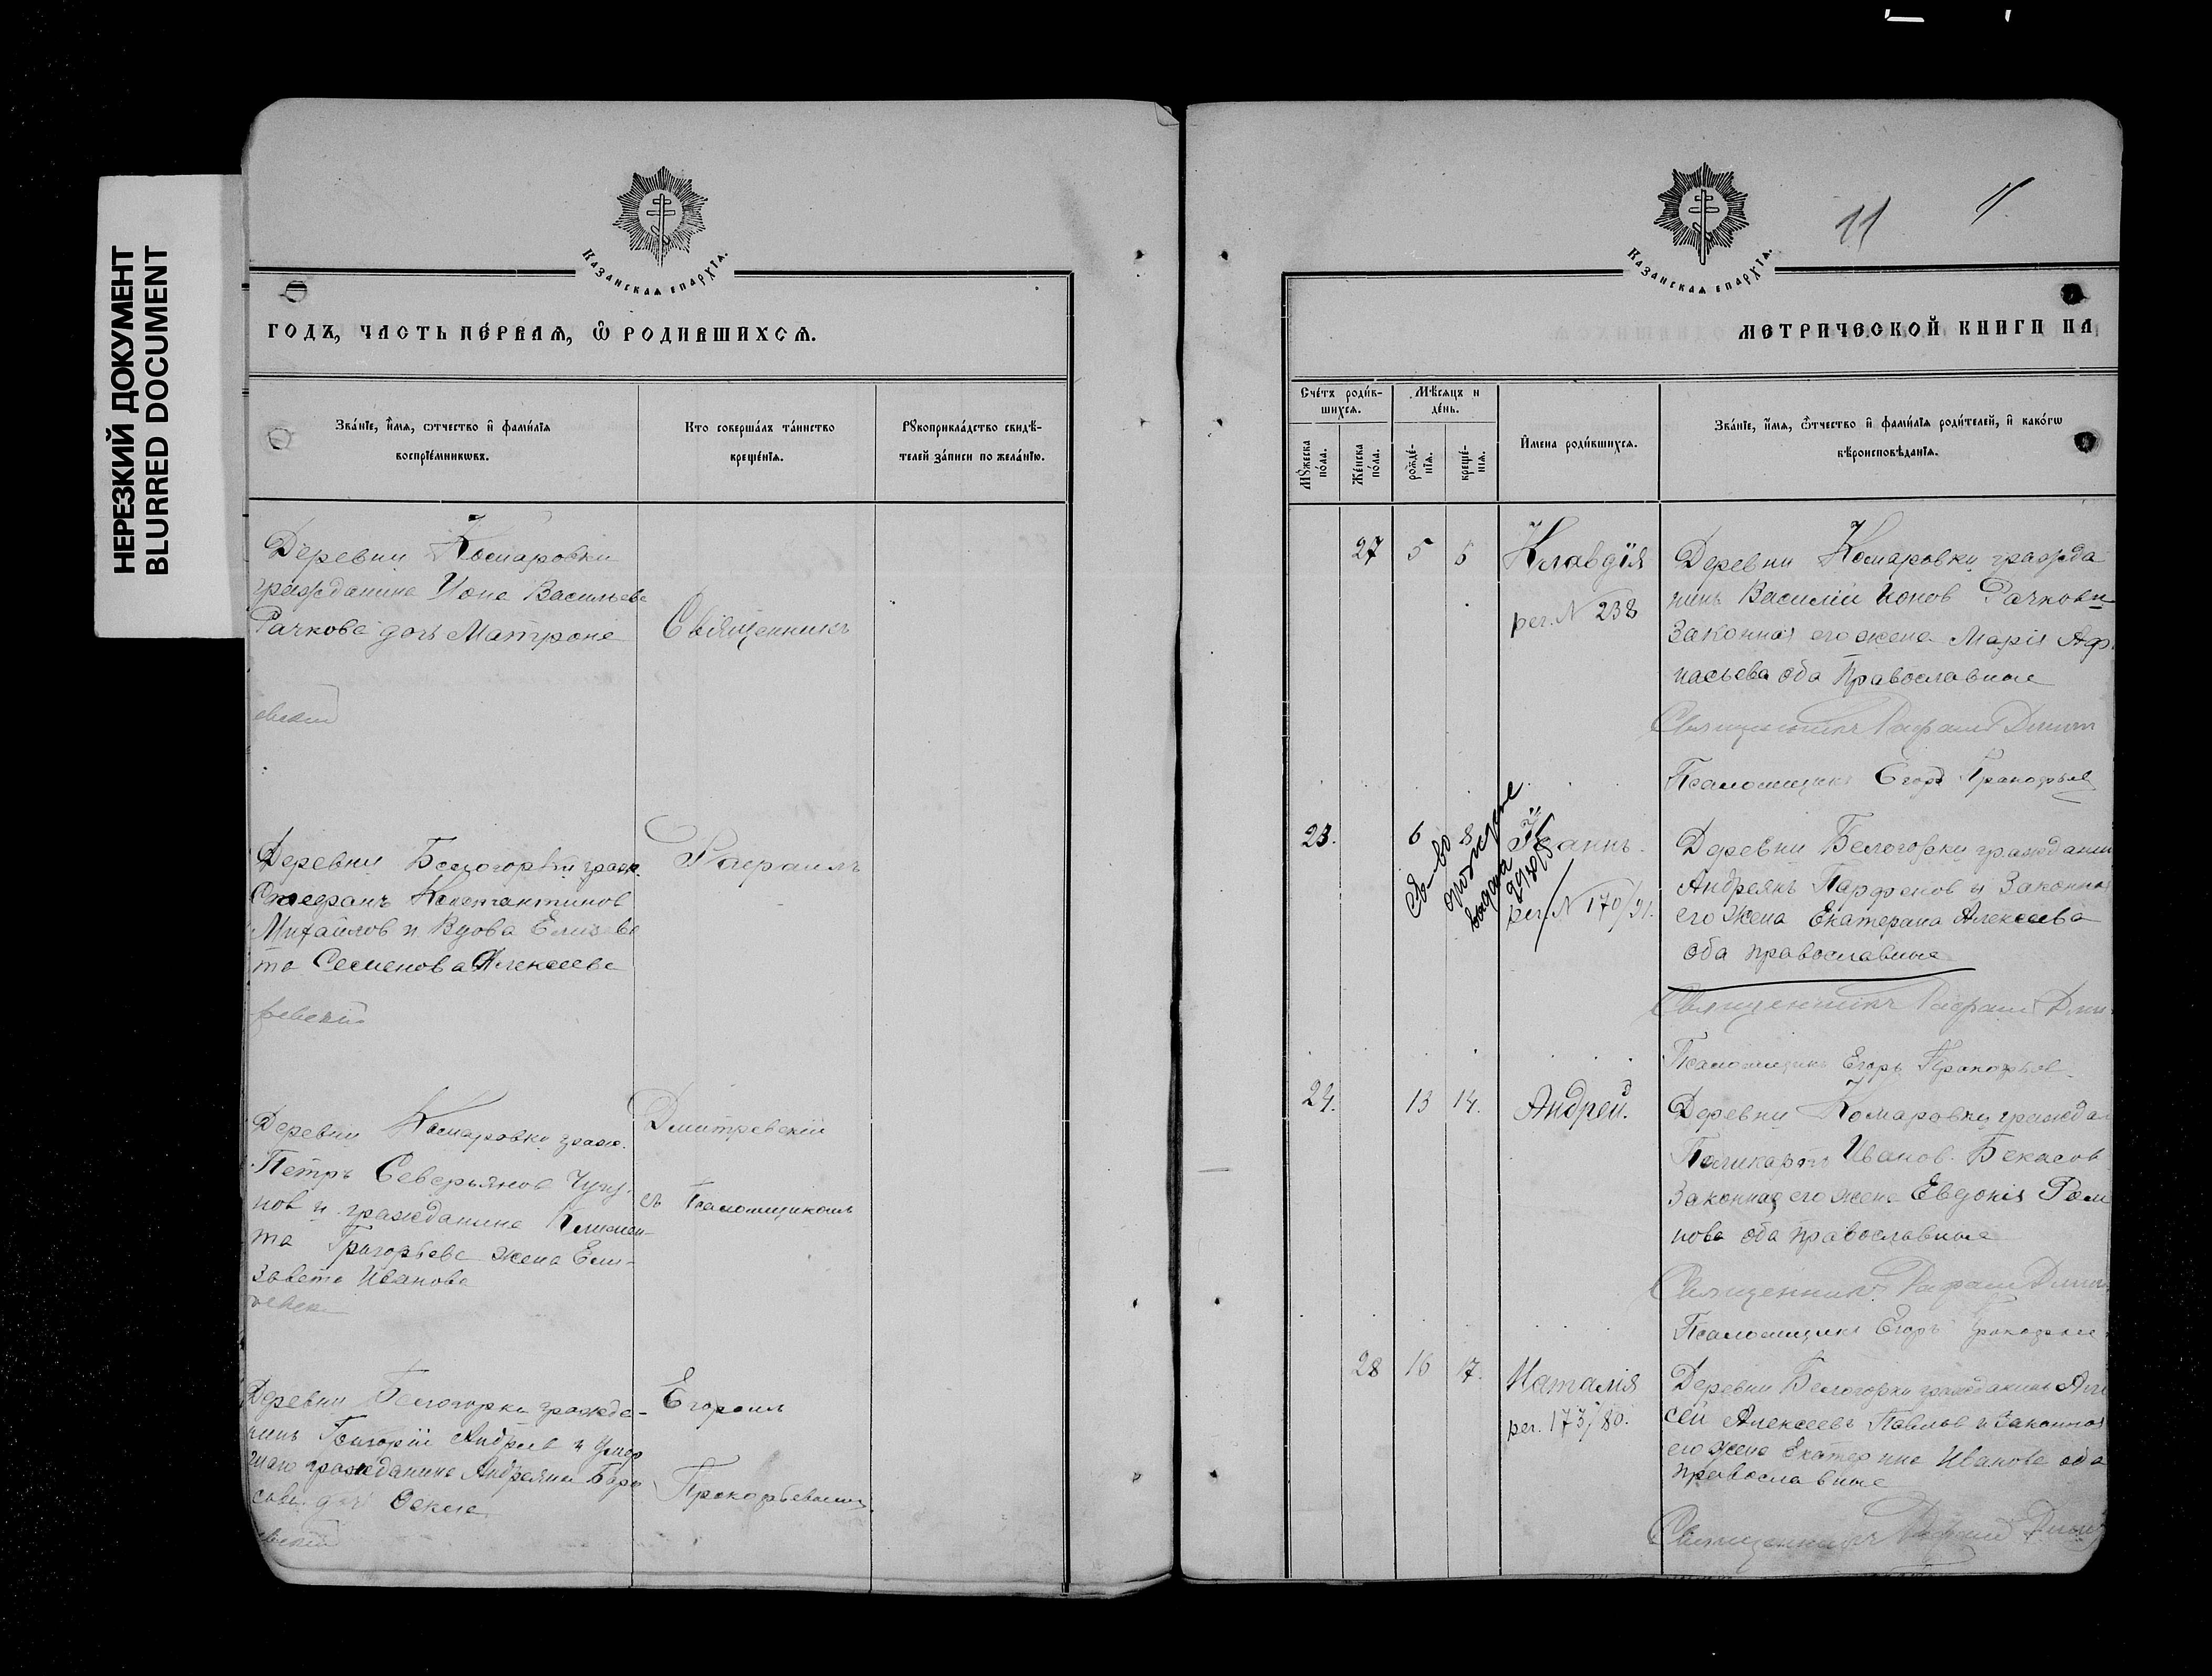 НЕРЕЗКИЙ ДОКУМЕНТ
BLURRED DOCUMENT
Казанская епархїѧ.
годъ, часть пе́рваѧ, ѡ҆ родившихсѧ.
Зва́нїе, и҆́мѧ, ѻтчество и҆ фами́лїѧ
воспрїе́мникѡвъ.
Кто соверша́лъ та́инство
креще́нїѧ.
Рꙋкоприкла́дство свидѣ́-
телей за́писи по жела́нїю.
Деревни Комаровки
гражданина Иона Васильева
Рачкова дочь Матрона
Священникъ
евский
Деревни Белогорки граж.
Стефанъ Константинов
Михайлов и Вдова Елизаве
та Семенова Алексеева
Рафаилъ
ревский
Деревни Комаровки граж.
Петръ Северьянов
нов и гражданина Климен-
та Григорьева жена Ели-
завета Иванова
Дмитревский
съ Псаломщикомъ
Деревни Белогорки гражда-
нинъ Григорий Андреев и умер
шаго гражданина Андреяна
дочь Фекла
Егоромъ
Прокофьевымъ
евский
Казанская епархїѧ.
11
метрической книги на
Сче́тъ роди́в-
шихсѧ.
Мѣ́сѧцъ и
де́нь.
Мꙋ́жеска
по́ла.
Же́нска
по́ла.
рожде́-
нїѧ.
креще́-
нїѧ.
И҆мена роди́вшихсѧ.
Зва́нїе, и҆́мѧ, ѻ҆тчество и҆ фами́лїѧ роди́телей, и҆ како́гѡ
вѣроисповѣ́данїѧ.
27 5 5 Клавдїя
рег. N 238
Деревни Комаровки гражда
нинъ Василий Ионов Рачков и
Законная его жена Марія Аф
насьева оба Православные
Священникъ Рафаил Дмит
Псаломщикъ Егоръ Прокофьев
23. 6 8 Іоаннъ.
Св-во
о рожден
выдана
рег. N 170/91.
Деревни Белогорки гражданин
Андреянъ Парфенов и Законная
его жена Екатерина Алексеева
оба православные
Священникъ Рафаил Дми
Псаломщикъ Егоръ Прокофьев
24. 13 14. Андрей.
Деревни Комаровки гражда
Поликарпъ Иванов Бекасов
Законная его жена Евдокія Ром
нова оба православные
Священникъ Рафаил Дмит
Псаломщикъ Егоръ Прокофьев
28 16 17. Наталія
рег. 173/80.
Деревни Белогорки гражданинъ Але
сей Алексеевъ Павлов и Законная
его жена Екатерина Иванова оба
православные
Священникъ Рафаил Дмит